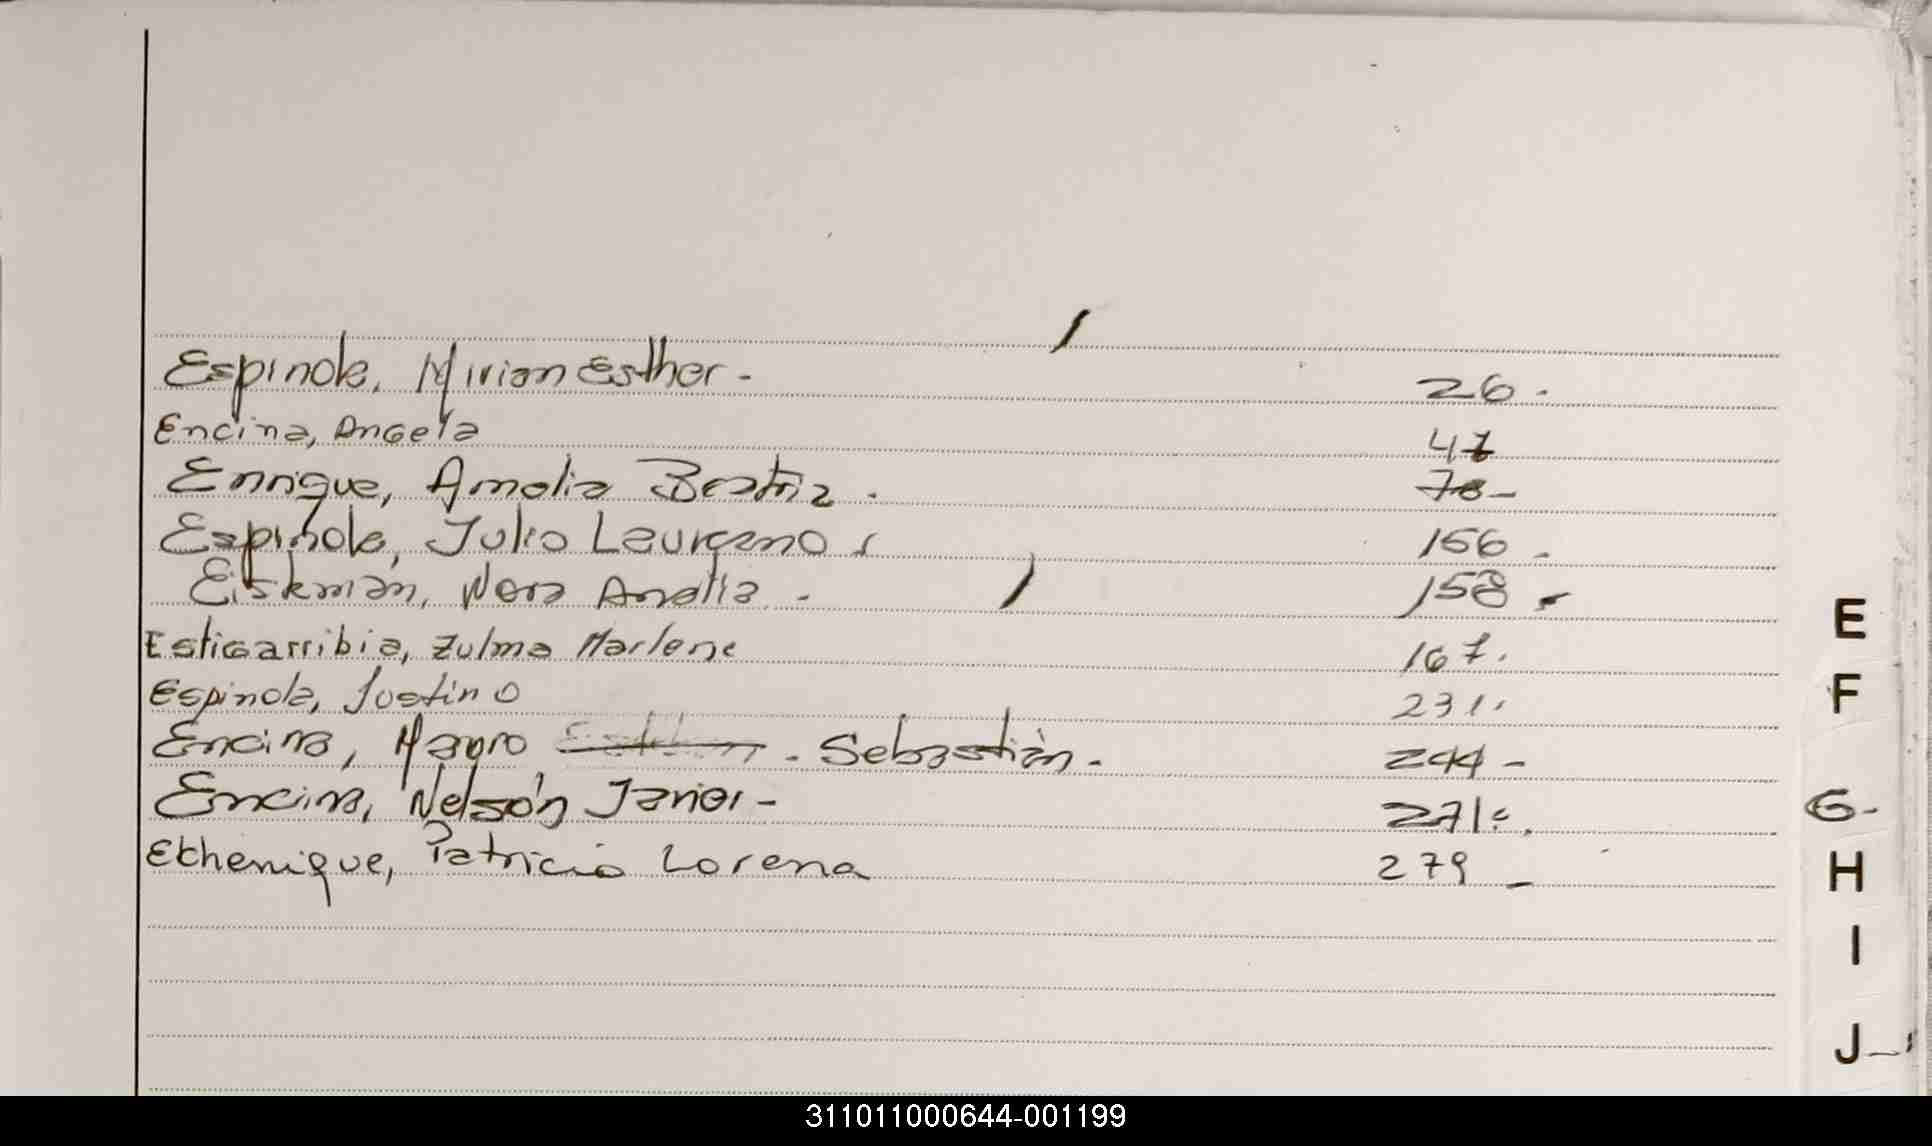 Espinola, Mirian Esther. 26.
Encina, Angela 47
Enrique, Amalia Beatriz. 78-
Espinola, Julio Laureano 156.
Eiskman, Nora Analia. 158.
Estigarribia, Zulma Marlene 167.
Espinola, Justino 231.
Encina, Mauro . Sebastián. 244-
Encina, Nelsón Javier- 271.
Etchenique, Patricia Lorena 279-
E
F
G
H
I
J
311011000644-001199